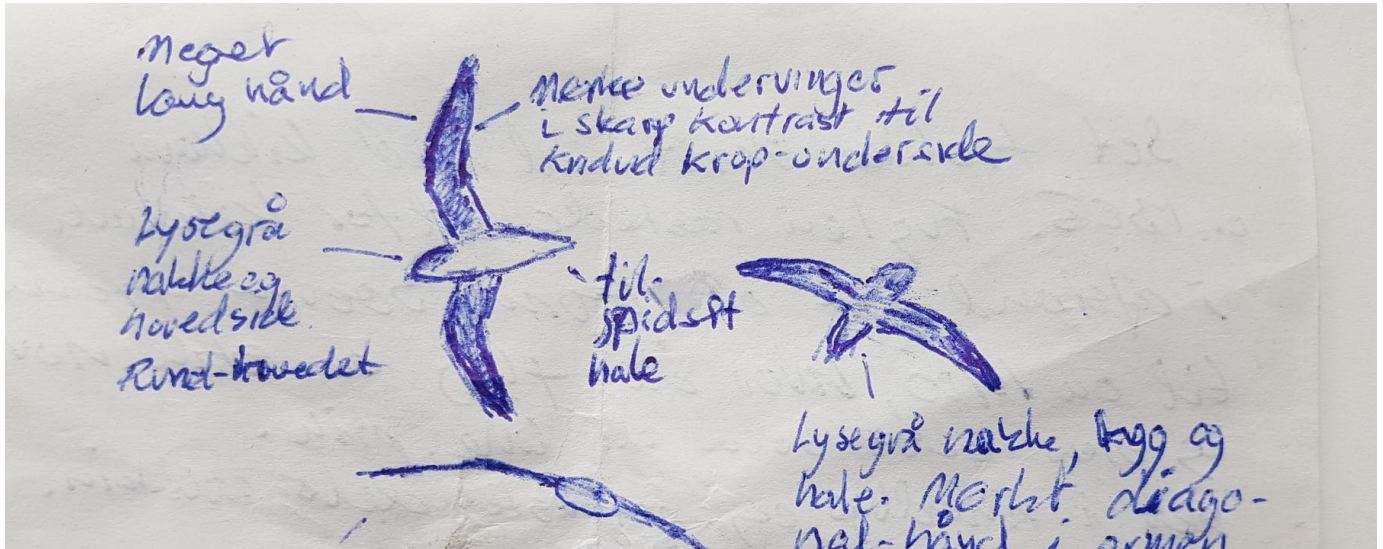 Meget
lang hånd
Mørke undervinger
i skarp kontrast til
kridhvid krop-underside
Lysegrå
nakke og
hovedside.
Rund-hovedet
til-
spidset
hale
Lysegrå nakke, ryg og
hale. Mørkt diago-
nal-bånd i armen